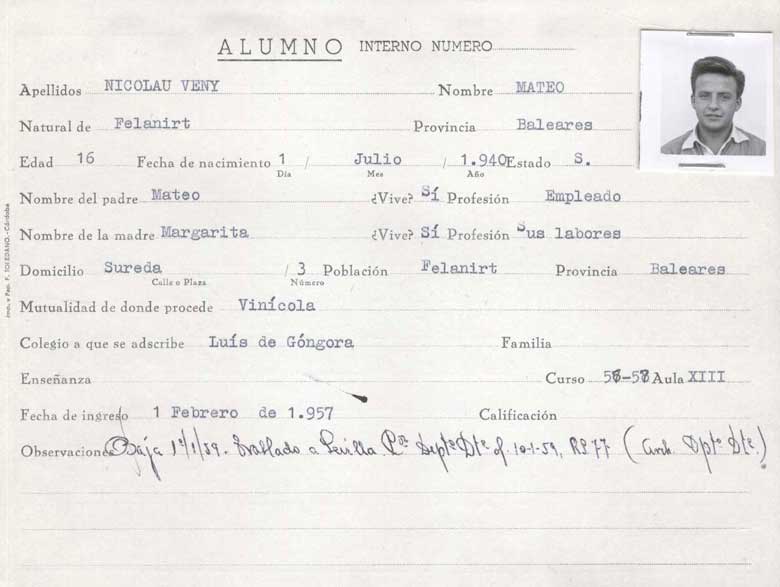 ALUMNO INTERNO NUMERO
Apellidos NICOLAU VENY Nombre MATEO
Natural de Felanirt Provincia Baleares
Edad 16 Fecha de nacimiento 1 / Julio / 1.940 Estado S.
Día Mes Año
Nombre del padre Mateo ¿Vive? Sí Profesión Empleado
Nombre de la madre Margarita ¿Vive? Sí Profesión Sus labores
Domicilio Sureda / 3 Población Felanirt Provincia Baleares
Calle o Plaza Número
Mutualidad de donde procede Vinícola
Colegio a que se adscribe Luís de Góngora Familia
Enseñanza Curso Aula XIII
Fecha de ingreso 1 Febrero de 1.957 Calificación
Observaciones Baja 1º/1/59. Trasladado a Sevilla. Dptº Dte. of. 10-1-59, RS 77 (Arch. Dptº Dte.)
Imp. y Pap. F. TOLEDANO.-Córdoba